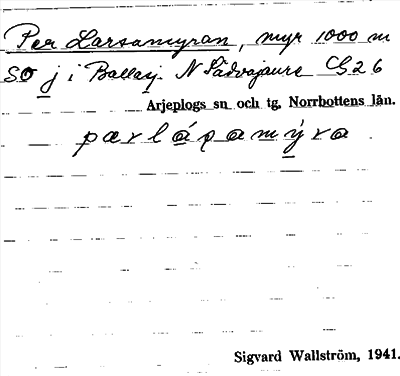 Per Larsamyran, myr 1000 m
SO j i Ballasj. N Sädvajaure Cg 26
Arjeplogs sn och tg, Norrbottens län.
pærlásamýra.
Sigvard Wallström, 1941.